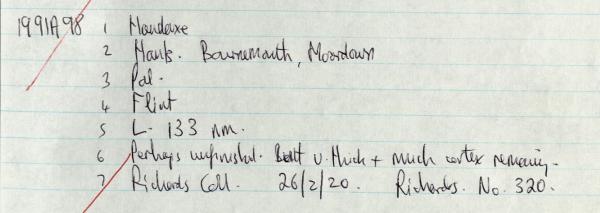 1991A98 1 Handaxe
2 Hants. Bournemouth, Moordown
3 Pal.
4 Flint
5 L. 133 mm.
6 Perhaps unfinished. Butt v. thick + much cortex remaining.
7 Richards Coll. 26/2/20. Richards. No. 320.